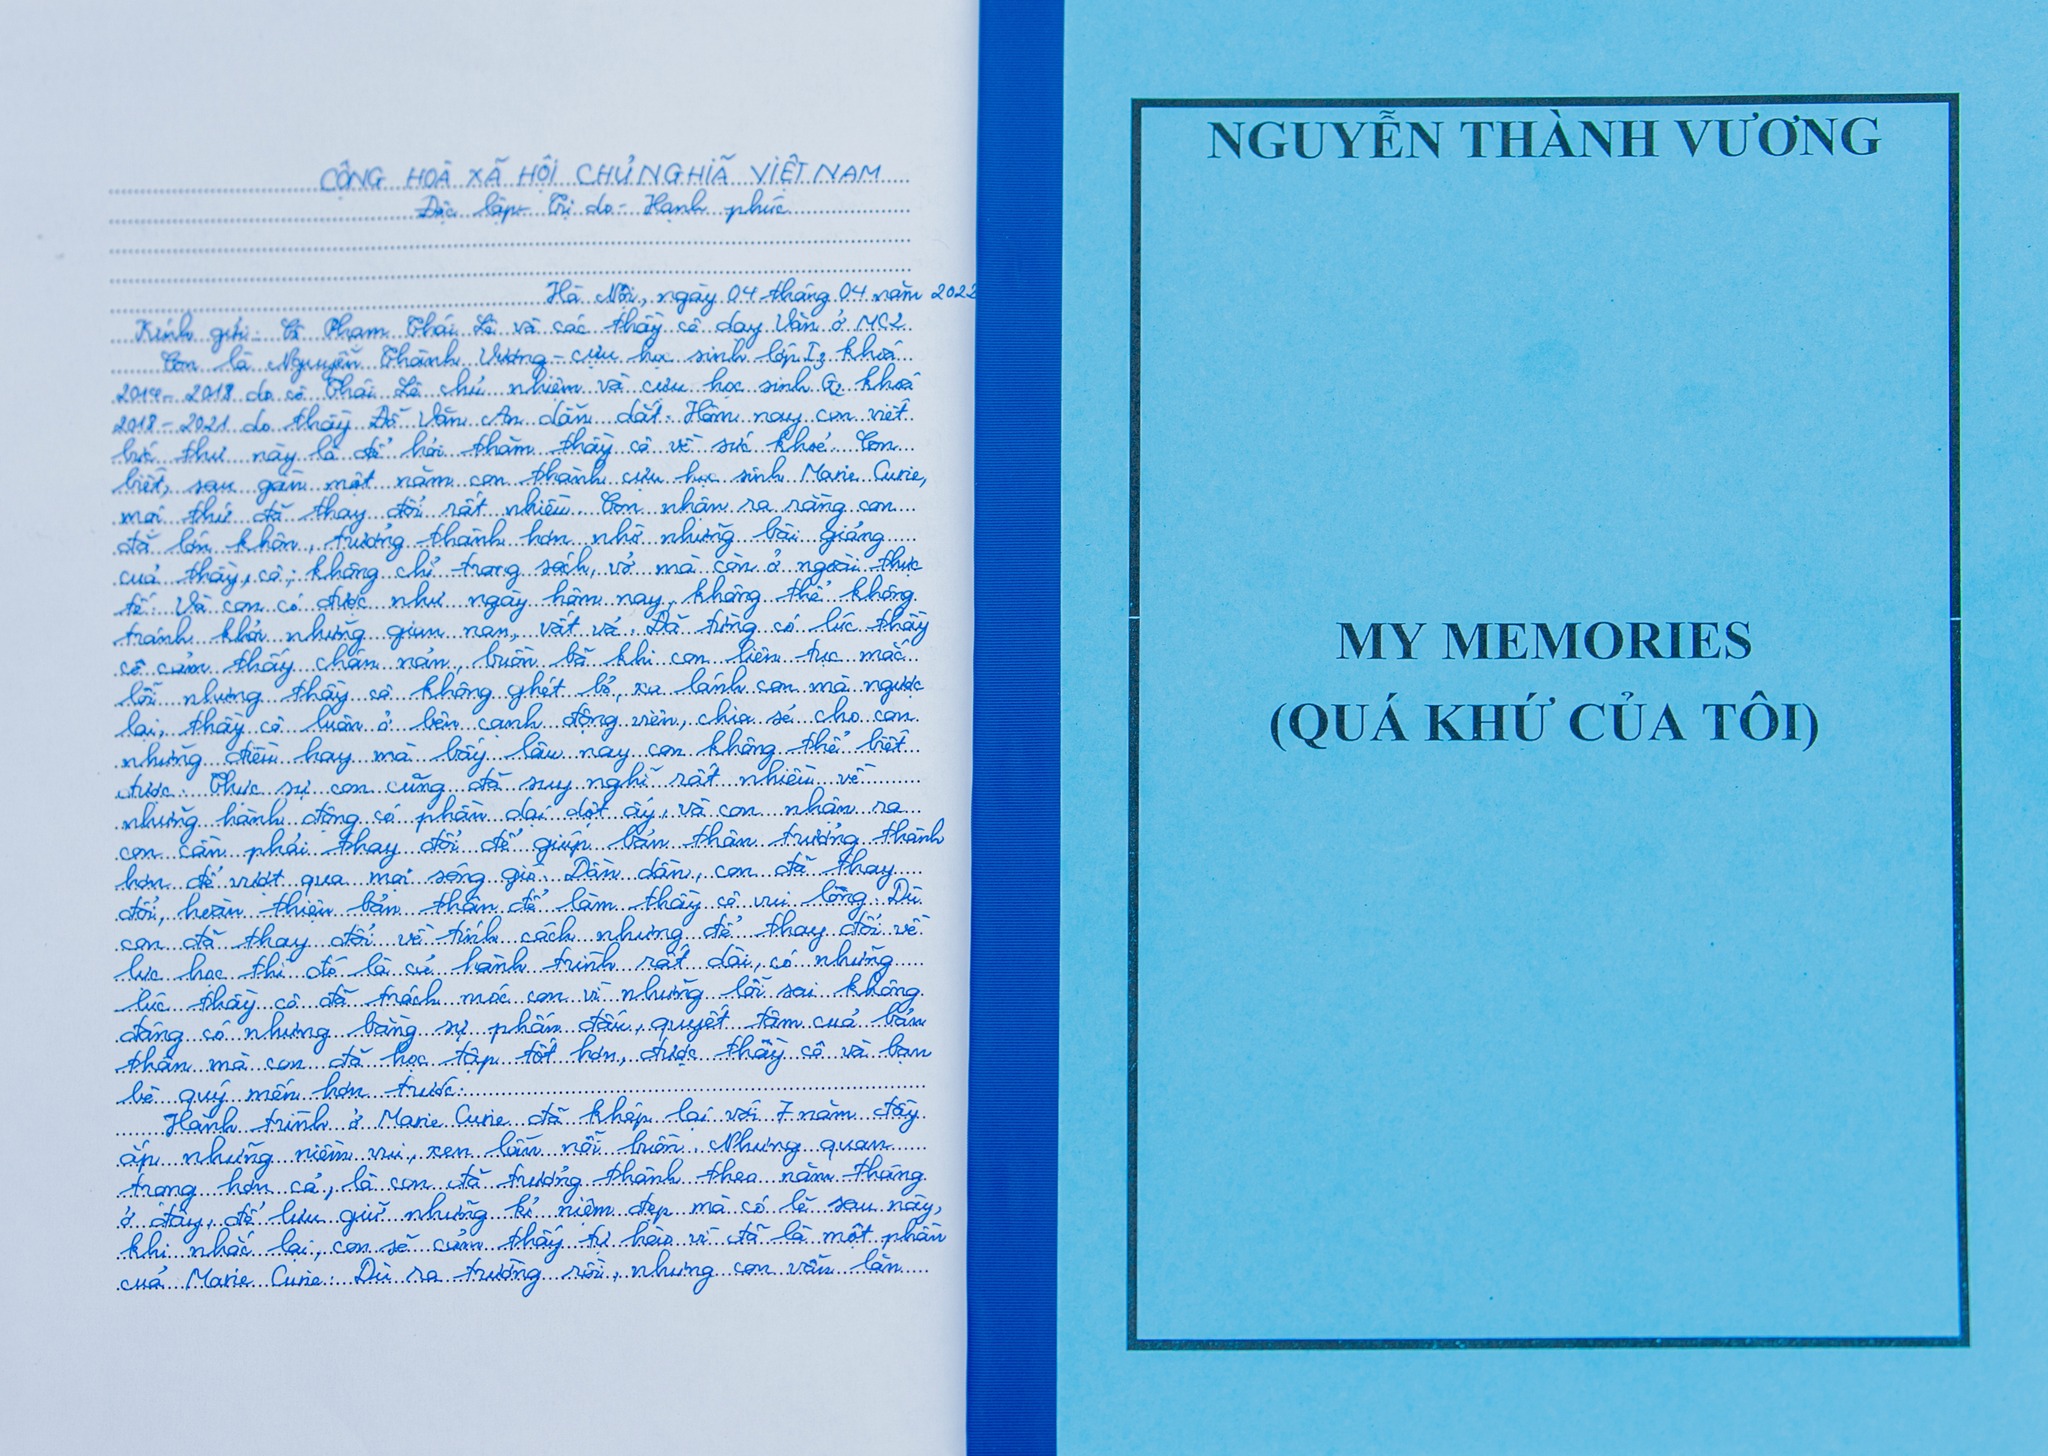 CỘNG HOÀ XÃ HỘI CHỦ NGHĨA VIỆT NAM
Độc lập - Tự do - Hạnh phúc
Hà Nội, ngày 04 tháng 04 năm 2022
Kính gửi: Cô Phạm Thái Lê và các thầy cô dạy Văn ở MC2
Con là Nguyễn Thành Vương - cựu học sinh lớp I3 khoá
2014 - 2018 do cô Thái Lê chủ nhiệm và cựu học sinh G2 khoá
2018 - 2021 do thầy Đỗ Văn An dẫn dắt. Hôm nay con viết
bức thư này là để hỏi thăm thầy cô về sức khoẻ. Con
biết, sau gần một năm con thành cựu học sinh Marie Curie,
mọi thứ đã thay đổi rất nhiều. Con nhận ra rằng con
đã lớn khôn, trưởng thành hơn nhờ những bài giảng
của thầy, cô; không chỉ trong sách, vở mà còn ở ngoài thực
tế. Và con có được như ngày hôm nay, không thể không
tránh khỏi những gian nan, vất vả. Đã từng có lúc thầy
cô cảm thấy chán nản, buồn bã khi con liên tục mắc
lỗi nhưng thầy cô không ghét bỏ, xa lánh con mà ngược
lại, thầy cô luôn ở bên cạnh động viên, chia sẻ cho con
những điều hay mà bấy lâu nay con không thể biết
được. Thực sự con cũng đã suy nghĩ rất nhiều về
những hành động có phần dại dột ấy, và con nhận ra
con cần phải thay đổi để giúp bản thân trưởng thành
hơn để vượt qua mọi sóng gió. Dần dần, con đã thay
đổi, hoàn thiện bản thân để làm thầy cô vui lòng. Dù
con đã thay đổi về tính cách nhưng để thay đổi về
lực học thì đó là cả hành trình rất dài, có những
lúc thầy cô đã trách móc con vì những lỗi sai không
đáng có nhưng bằng sự phấn đấu, quyết tâm của bản
thân mà con đã học tập tốt hơn, được thầy cô và bạn
bè quý mến hơn trước.
Hành trình ở Marie Curie đã khép lại với 7 năm đầy
ắp những niềm vui, xen lẫn nỗi buồn. Nhưng quan
trọng hơn cả, là con đã trưởng thành theo năm tháng
ở đây, để lưu giữ những kỉ niệm đẹp mà có lẽ sau này,
khi nhắc lại, con sẽ cảm thấy tự hào vì đã là một phần
của Marie Curie. Dù ra trường rồi, nhưng con vẫn lần
NGUYỄN THÀNH VƯƠNG
MY MEMORIES
(QUÁ KHỨ CỦA TÔI)